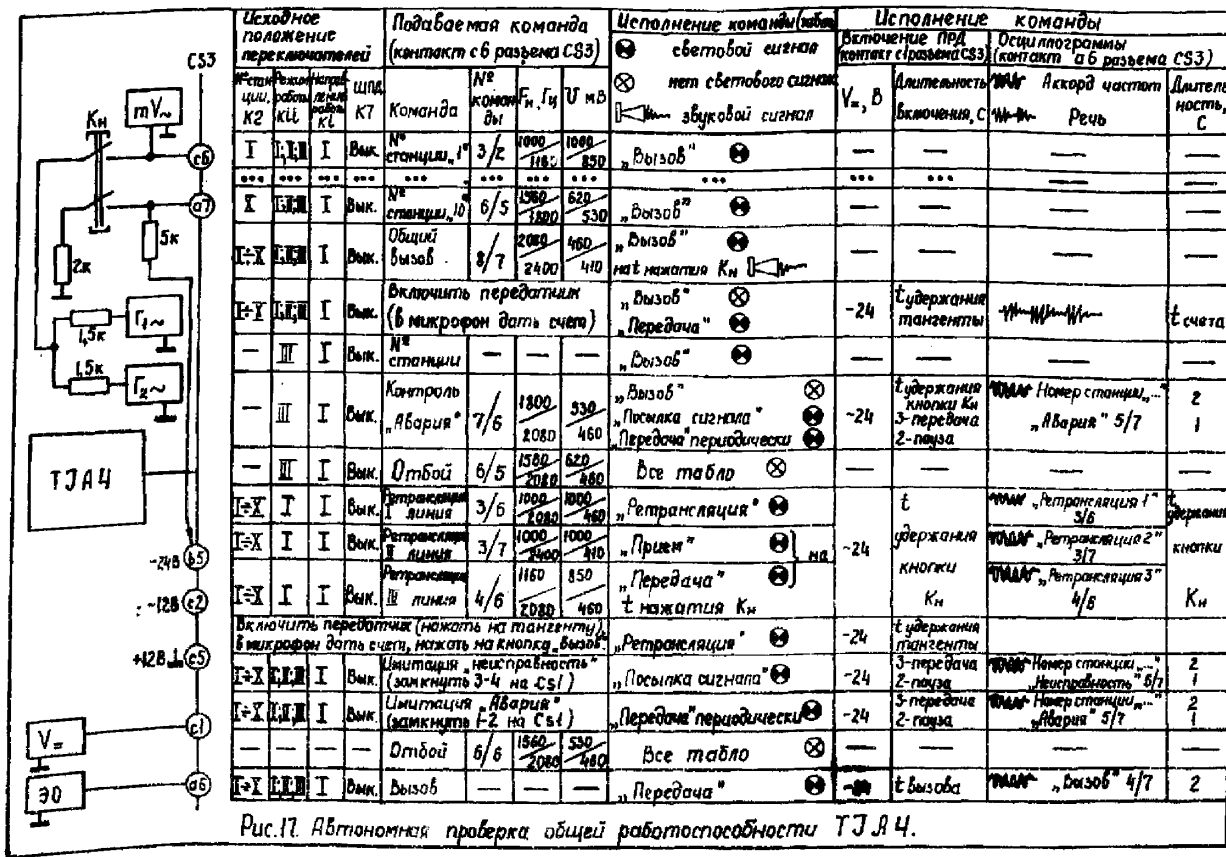 CS3
Кн
mV~
c6
a7
5к
2к
1,5к
Г1~
1,5к
Г2~
TJA4
-24В b5
-12В c2
+12В c5
c1
V=
a6
ЭО
Исходное положение переключателей
Подаваемая команда (контакт c6 разъема CS3)
Исполнение команды
световой сигнал
нет светового сигнала
звуковой сигнал
Исполнение команды
Включение ПРД (контакт c1 разъема CS3)
Осциллограммы (контакт a6 разъема CS3)
№ станции, К2
Режим работы КII
Направление работы К1
ШПД К7
Команда
№ команды
Fн, Гц
U мВ
V=, В
Длительность включения, С
Аккорд частот
Речь
Длительность, С
I I,II,III I Вык. № станции „1" 3/2 1000/1160 1000/850 „Вызов" — — — —
... ... ... ... ... ... ... ... ... ... ... — —
X I,II,III I Вык. № станции „10" 6/5 1560/1800 620/530 „Вызов" — — — —
I÷X I,II,III I Вык. Общий вызов 8/7 2080/2400 460/410 „Вызов" на t нажатия Кн — — — —
I÷X I,II,III I Вык. Включить передатчик (в микрофон дать счет) „Вызов" „Передача" -24 t удержания тангенты t счета
— III I Вык. № станции — — — „Вызов" — — — —
— III I Вык. Контроль „Авария" 7/6 1800/2080 530/460 „Вызов" „Посылка сигнала" „Передача" периодически -24 t удержания кнопки Кн 3-передача 2-пауза „Номер станции„..." „Авария" 5/7 2 1
— III I Вык. Отбой 6/5 1560/2080 620/460 Все табло — — — —
I÷X I I Вык. Ретрансляция I линия 3/6 1000/2080 1000/460 „Ретрансляция" „Ретрансляция 1" 3/6
I÷X I I Вык. Ретрансляция II линия 3/7 1000/2400 1000/410 „Прием" на -24 t удержания кнопки Кн „Ретрансляция 2" 3/7 t удержания кнопки Кн
I÷X I I Вык. Ретрансляция III линия 4/6 1160/2080 850/460 „Передача" t нажатия Кн „Ретрансляция 3" 4/6
Включить передатчик (нажать на тангенту), в микрофон дать счет, нажать на кнопку „Вызов" „Ретрансляция" -24 t удержания тангенты
I÷X I,II,III I Вык. Имитация „неисправность" (замкнуть 3-4 на CS1) „Посылка сигнала" -24 3-передача 2-пауза Номер станции„..." „Неисправность" 6/7 2 1
I÷X I,II,III I Вык. Имитация „Авария" (замкнуть 1-2 на CS1) „Передача" периодически -24 3-передача 2-пауза Номер станции„..." „Авария" 5/7 2 1
— — — — Отбой 6/6 1560/2080 530/460 Все табло — — — —
I÷X I,II,III I Вык. Вызов — — — „Передача" t вызова „Вызов" 4/7 2
Рис.17. Автономная проверка общей работоспособности TJA4.